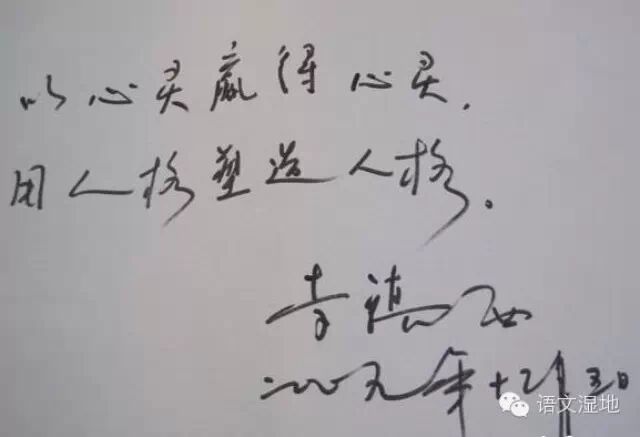 以心灵赢得心灵，
用人格塑造人格。
李镇西
二〇〇九年十2月3日
语文湿地